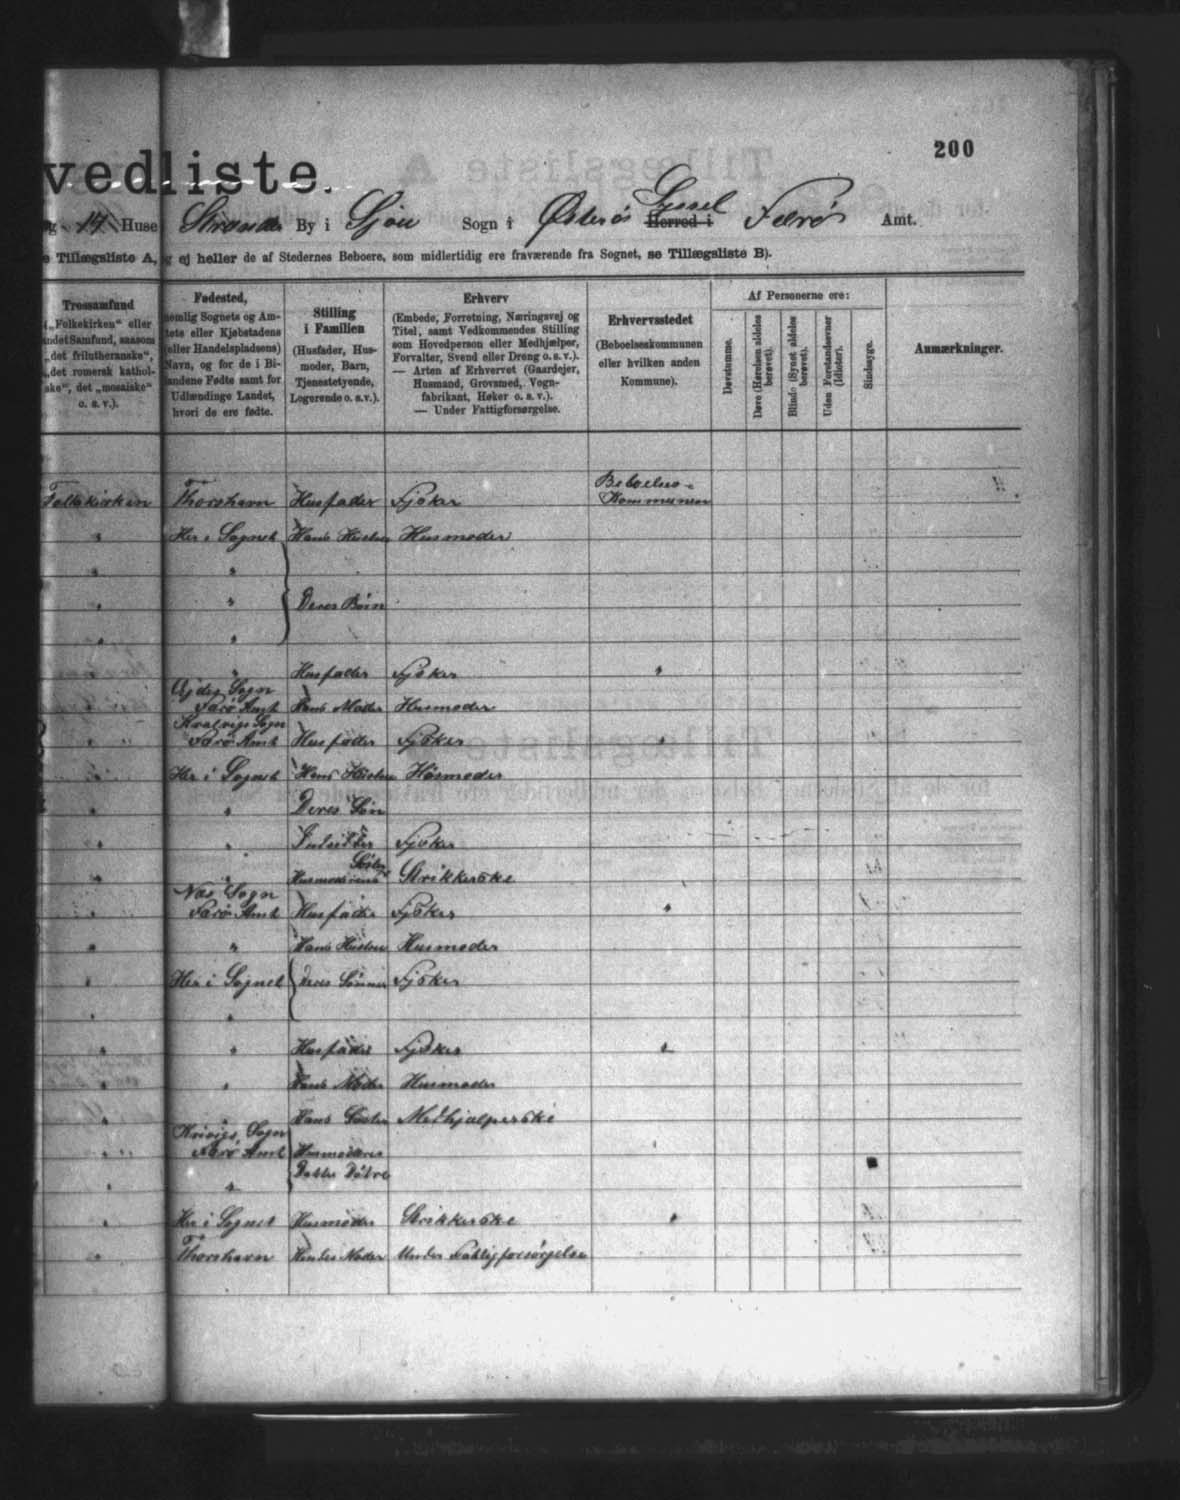 200
vedliste.
14 Huse Strænder By i Sjou Sogn i Østerøs Syssel Herred i Færø Amt.
e Tillægsliste A, og ej heller de af Stedernes Beboere, som midlertidig ere fraværende fra Sognet, se Tillægsliste B).
Trossamfund
„Folkekirken“ eller
andet Samfund, saasom
„det frilutheranske“,
„det romersk kathol-
ske“, det „mosaiske“
o. s. v.).
Fødested,
nemlig Sognets og Am-
tets eller Kjøbstadens
(eller Handelspladsens)
Navn, og for de i Bi-
landene Fødte samt for
Udlændinge Landet,
hvori de ere fødte.
Stilling
i Familien
(Husfader, Hus-
moder, Barn,
Tjenestetyende,
Logerende o. s. v.).
Erhverv
(Embede, Forretning, Næringsvej og
Titel, samt Vedkommendes Stilling
som Hovedperson eller Medhjælper,
Forvalter, Svend eller Dreng o. s. v.).
— Arten af Erhvervet (Gaardejer,
Husmand, Grovsmed, Vogn-
fabrikant, Høker o. s. v.).
— Under Fattigforsørgelse.
Erhvervsstedet
(Beboelseskommunen
eller hvilken anden
Kommune).
Af Personerne ere:
Døvstumme.
Døve (Hørelsen aldeles
berøvet).
Blinde (Synet aldeles
berøvet).
Uden Forstandsevner
(Idioter).
Sindssyge.
Anmærkninger.
Folkekirken Thorshavn Husfader Fisker Beboelses-
Kommunen
" Her i Sognet Hans Hustru Husmoder
" "
" " Deres Børn
" "
" Husfader Fisker "
Ejdes Sogn
Færø Amt Hans Moder Husmoder
Kvalvigs Sogn
" Færø Amt Husfader Fisker "
" Her i Sognet Hans Hustru Husmoder
" " Deres Søn
" " Fisker
Søster
" " Husmoderens Strikkerske
Næs Sogn
" Færø Amt Husfader Fisker "
" " Hans Hustru Husmoder
" Her i Sognet Deres Sønner Fisker
" "
" " Husfader Fisker "
" " Hans Moder Husmoder
" " Hans Søster Medhjælperske
Sogn
" Færø Amt Husmoderens
" "
" Her i Sognet Husmoder Strikkerske "
" Thorshavn Hendes Moder Under Fattigforsørgelse